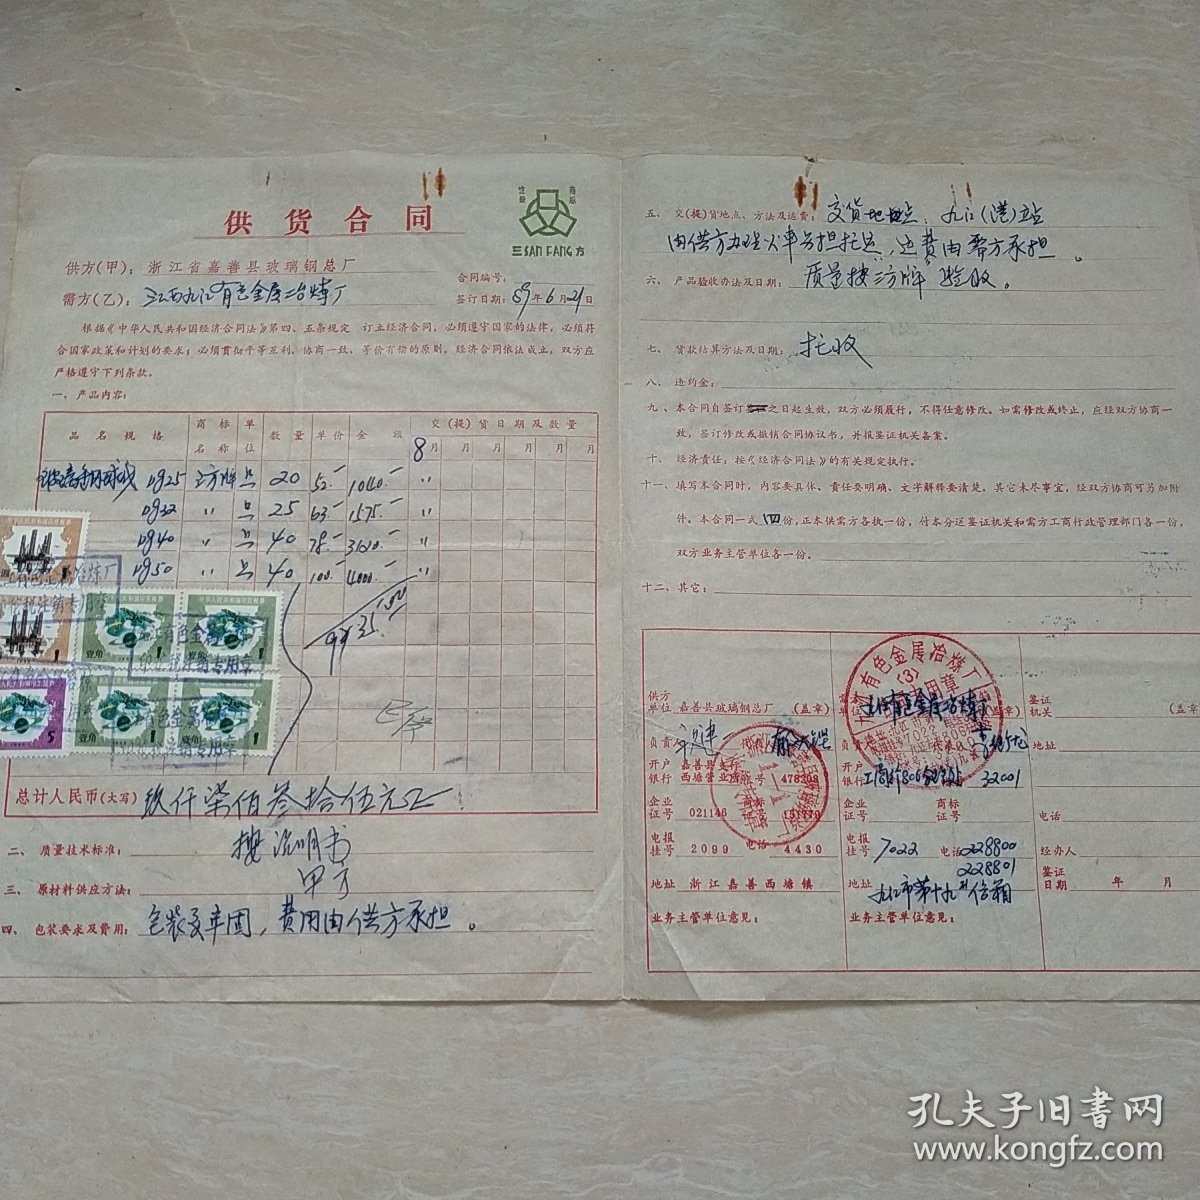 供货合同
注册
商标
三SAN FANG方
供方(甲)：浙江省嘉善县玻璃钢总厂
合同编号：
需方(乙)：江西九江有色金属冶炼厂
签订日期：89年6月21日
根据《中华人民共和国经济合同法》第四、五条规定 订立经济合同，必须遵守国家的法律，必须符
合国家政策和计划的要求；必须贯彻平等互利、协商一致、等价有偿的原则。经济合同依法成立，双方应
严格遵守下列条款。
一、产品内容：
品名规格 商标名称 单位 数量 单价 金额 交(提)货日期及数量
8月 月 月 月 月 月
Dg25 三方牌 只 20 52.- 1040.- 〃
Dg32 〃 只 25 63.- 1575.- 〃
Dg40 〃 只 40 78.- 3120.- 〃
Dg50 〃 只 40 100.- 4000.- 〃
9735.00
总计人民币(大写) 玖仟柒佰叁拾伍元正
二、质量技术标准： 按说明书
三、原材料供应方法： 甲方
四、包装要求及费用： 包装要牢固，费用由供方承担。
五、交(提)货地点、方法及运费： 交货地点、九江(港)站
由供方办理火车零担托运，运费由需方承担。
六、产品验收办法及日期： 质量按三方牌验收。
七、货款结算方法及日期： 托收
八、违约金：
九、本合同自签订之日起生效，双方必须履行，不得任意修改。如需修改或终止，应经双方协商一
致，签订修改或撤销合同协议书，并报签证机关备案。
十、经济责任：按《经济合同法》的有关规定执行。
十一、填写本合同时，内容要具体、责任要明确、文字解释要清楚。其它未尽事宜，经双方协商可另加附
件。本合同一式四份，正本供需方各执一份，付本分送签证机关和需方工商行政管理部门各一份，
双方业务主管单位各一份。
十二、其它：
供方单位 嘉善县玻璃钢总厂 (盖章)
负责人
开户银行 嘉善县支行西塘营业所 帐号 478208
企业证号 021146 商标证号 151770
电报挂号 2099 电话 4430
地址 浙江嘉善西塘镇
业务主管单位意见：
九江有色金属冶炼厂 (盖章)
开户银行 工商行806分理处 32001
企业证号 商标证号
电报挂号 7022 电话 228800
228801
地址 九江市第十九号信箱
业务主管单位意见：
签证机关 (盖章)
地址
电话
经办人
签证日期 年 月
中华人民共和国印花税票
壹角 1
壹角 1
壹角 1
壹角 1
5
孔夫子旧书网
www.kongfz.com